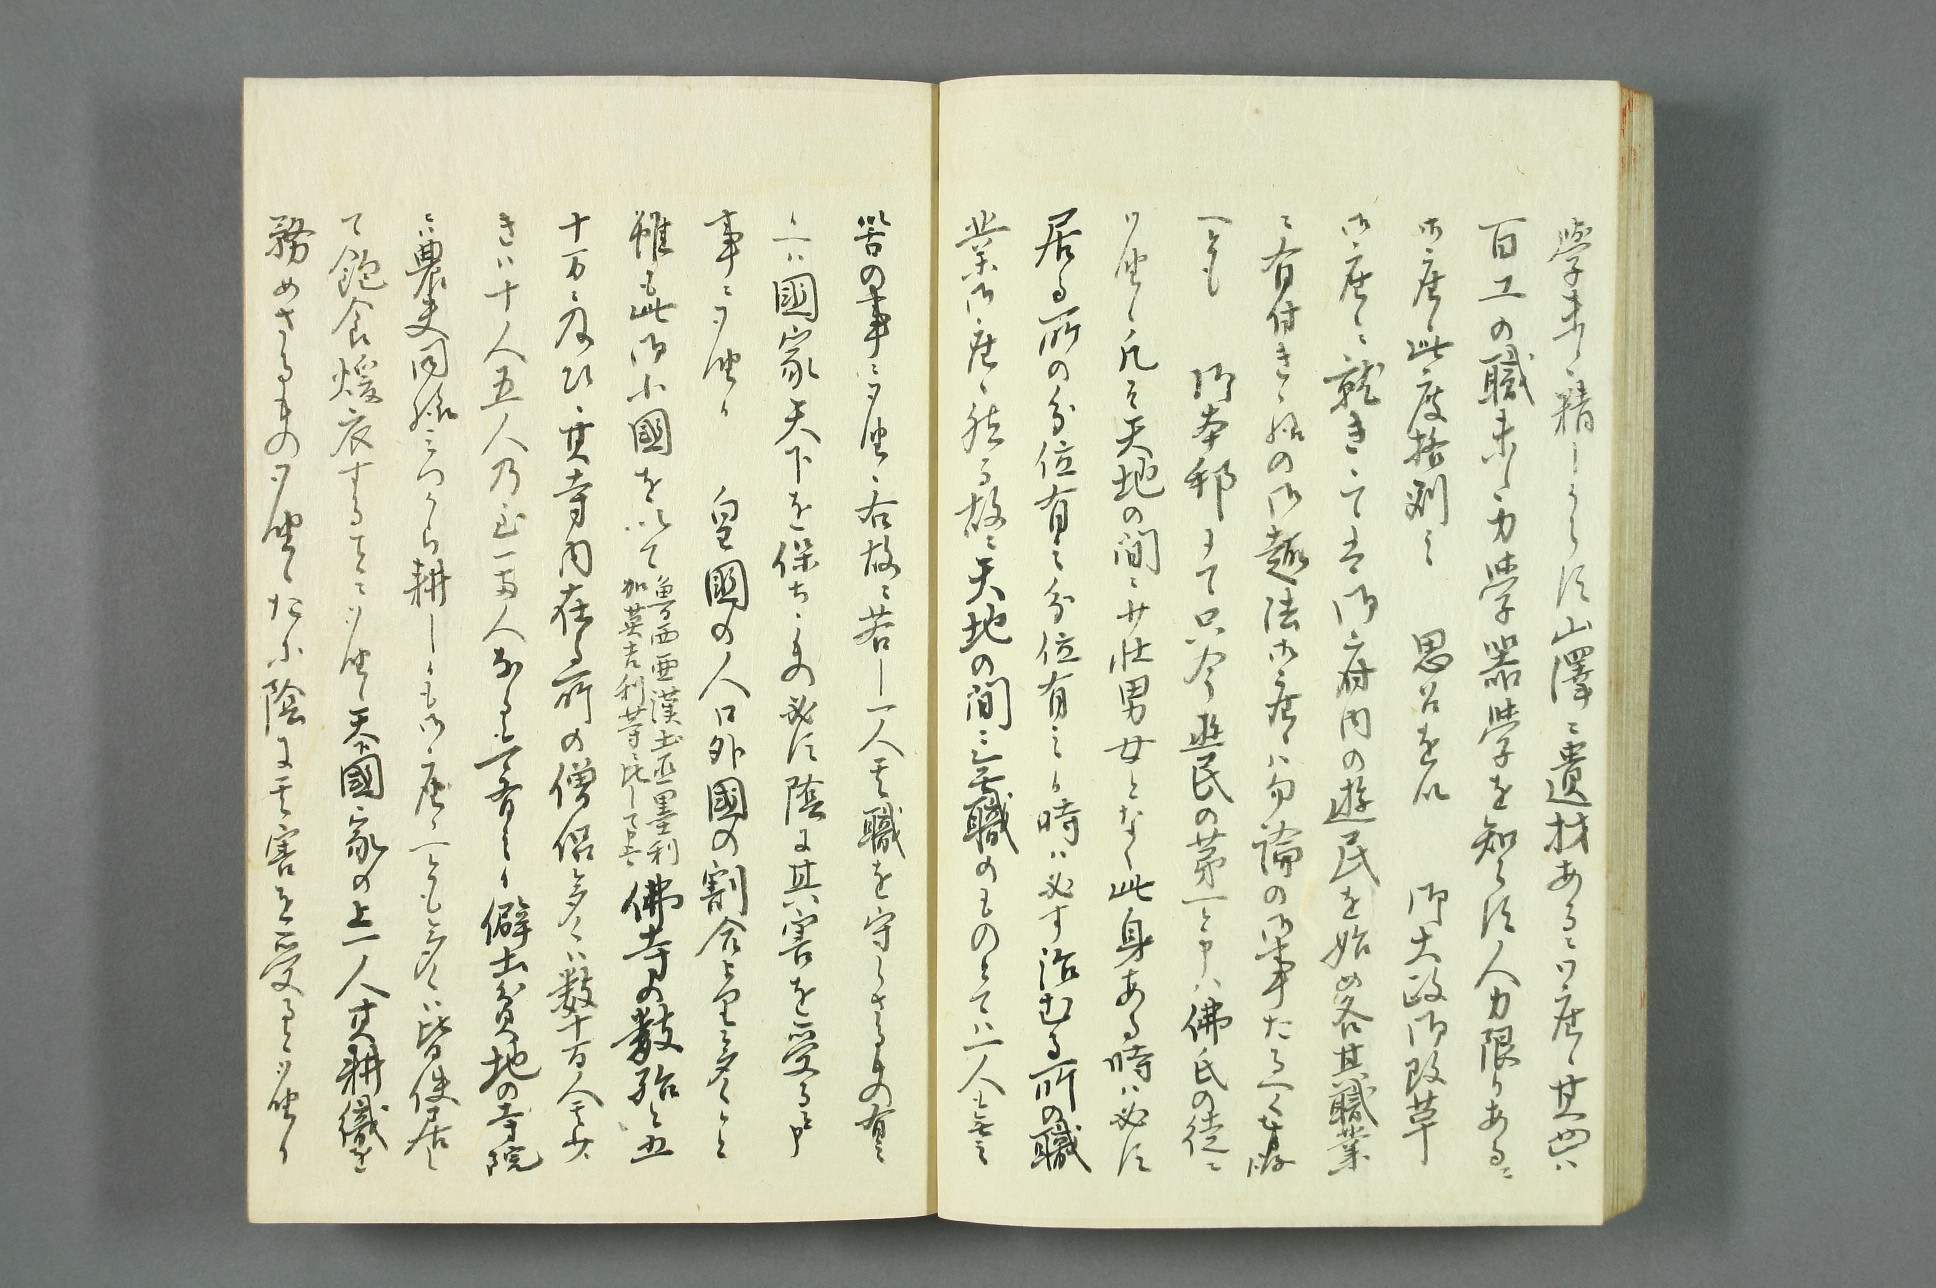 學未タ精しからす山澤ニ遺材あるニ御座候其四ハ
百工の職未タ力学器学を知らす人力限りあるニ
御座候此度格別之　思召を以　御大政御改革
御座候ニ就きて者御府内の遊民を始め各其職業
ニ有付き候様の御趣法御座候ハ勿論の御事たるへく奉存候
へとも　御本邦ニて只今遊民の第一と申ハ佛氏の徒ニ
御座候凡そ天地の間ニ少壮男女となく此身ある時ハ必す
居る所の分位有之分位有之候時ハ必す治むる所の職
業御座候然る故ニ天地の間ニ無職のものとてハ一人も無之
筈の事ニ御座候右故ニ若し一人其職を守らさるもの有之
候へハ國家天下を保ち候もの必す陰に其害を受る と申
事ニ御座候　皇國の人口外國の割合より 多くと
雖も此御小國を以て魯西亜漢土亜墨利
加英吉利等ニ比して也佛寺の数殆と五
十万ニ及ひ其寺内在る所の僧侶多くハ数十百人其少
きハ十人五人乃至一両人なるも可有之候僻土貧地の寺院
ニハ農夫同様ニみつから耕し候も御座候へとも多くハ皆佚居し
て飽食煖衣することニ御座候天下國家の上一人其耕織を
務めさるもの御座候てたに陰に其害を受ると御座候